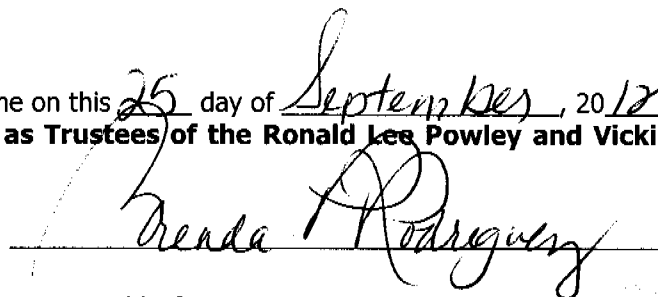 ne on this 25 day of September, 2012
as Trustees of the Ronald Lee Powley and Vicki
Brenda Rodriguez